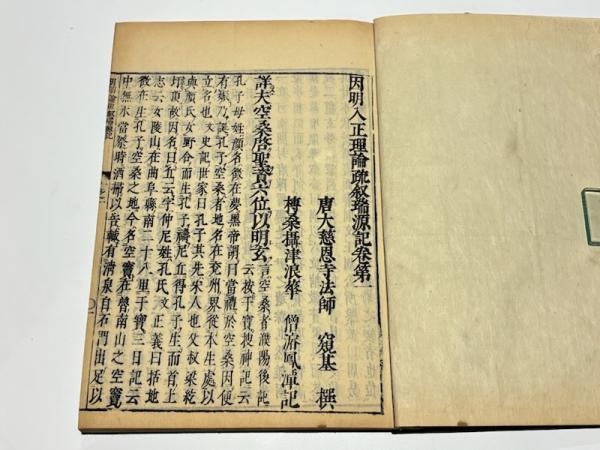 因明入正理論疏叙瑞源記卷第一
唐大慈恩寺法師　窺基　撰
榑桑攝津浪華　僧濬鳳潭記
詳夫空桑啓聖資六位以明玄
言空桑者濮陽後記
云按干寶搜神記云
孔子母姓顏名徵在夢黑帝謂曰當禮於空桑因便
有娠乃誕孔子空桑者地名在兗州界從本生處以
立名也又史記世家曰孔子其先宋人也父叔梁紇
與顏氏女野合而生孔子禱尼丘得孔子生而首上
圩頂故因名曰丘云字仲尼姓孔氏文正義曰括地
志云女陵山在曲阜縣南二十八里干寶三日記云
徵在生孔子空桑之地今名空竇在魯南山之空竇
中無水當祭時洒掃以告輒有清泉自石門出足以